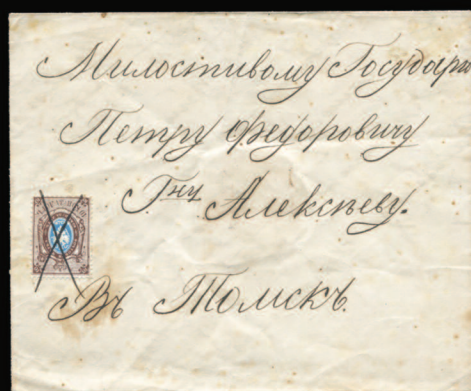 Милостивому Государю
Петру Федоровичу
Г.ну Алексѣеву.
Въ Томскъ.